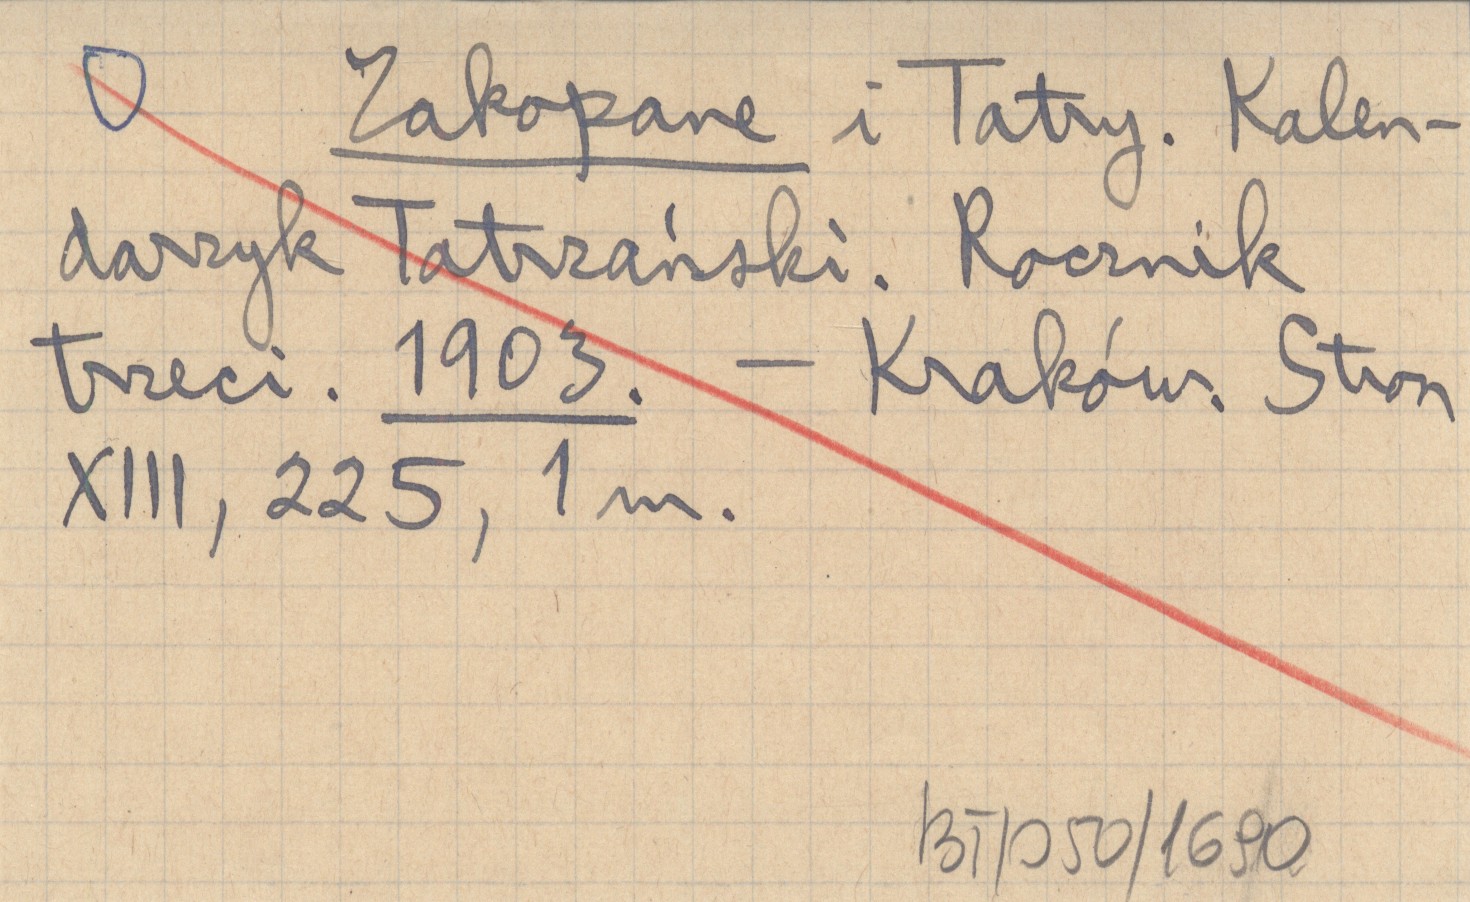 Zakopane i Tatry. Kalen-
darzyk Tatrzański. Rocznik
trzeci. 1903. — Kraków. Stron
XIII, 225, 1 m.
BT/D50/1690